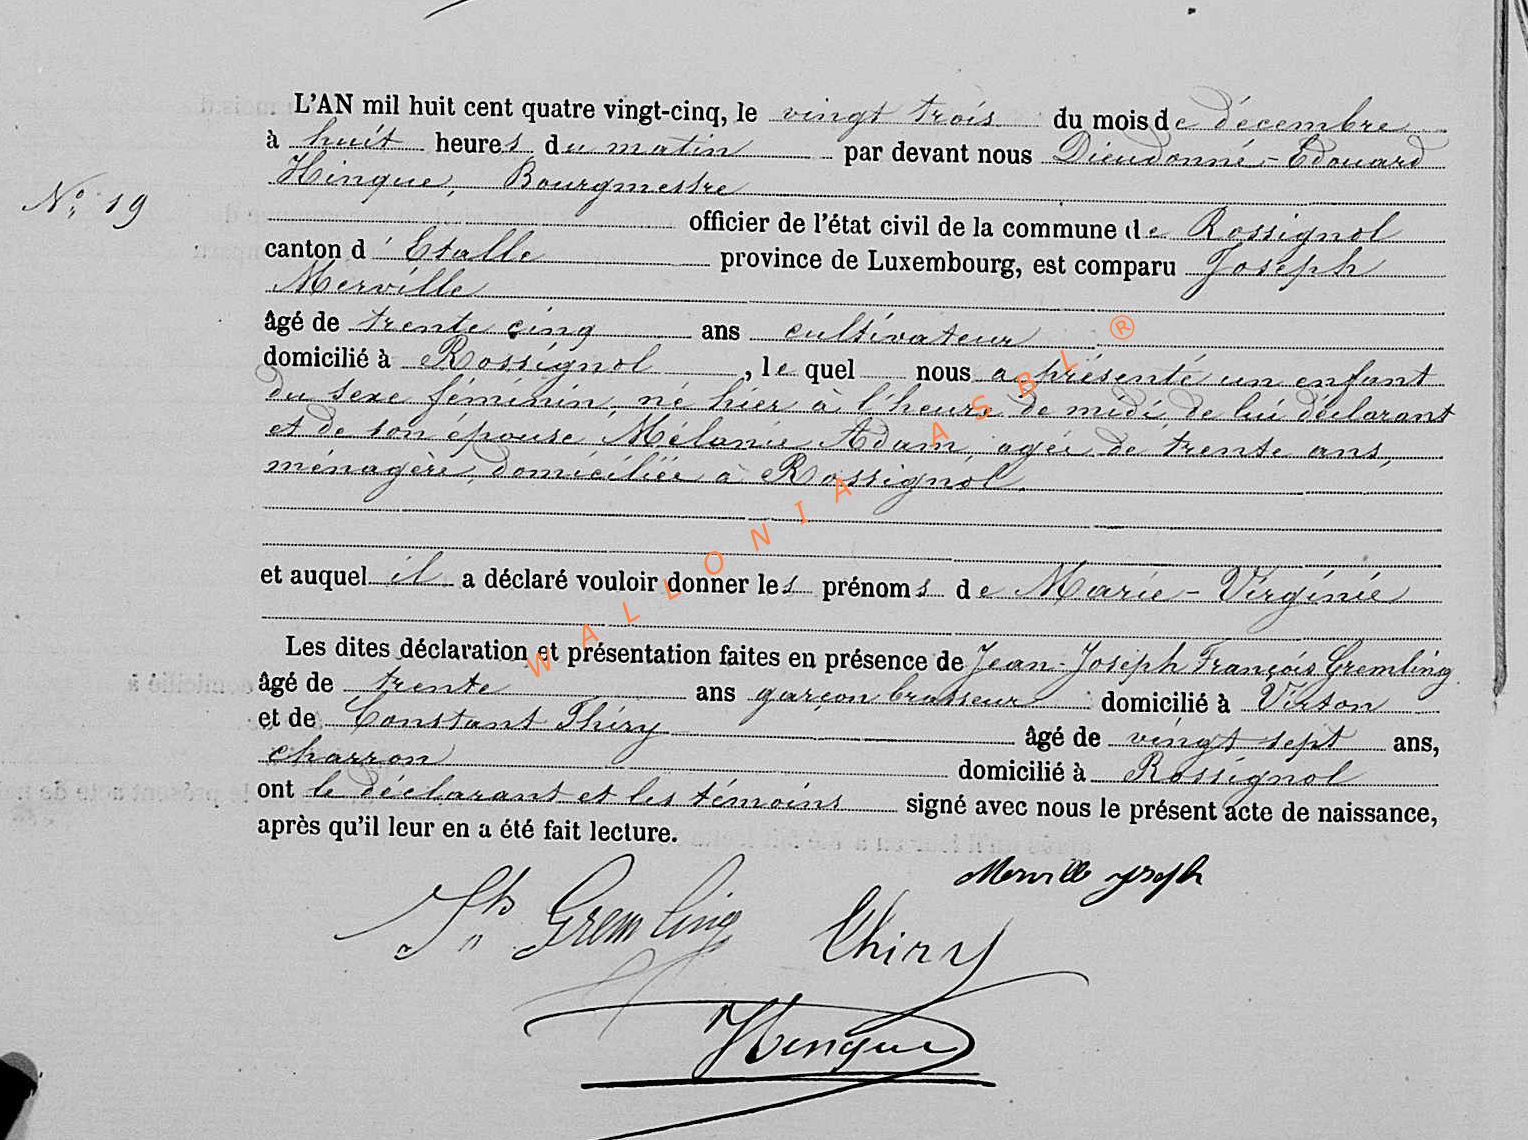 L'AN mil huit cent quatre vingt-cinq, le vingt trois du mois de décembre
à huit heures du matin par devant nous Dieudonné-Edouard
Hinque, Bourgmestre
N° 19
officier de l'état civil de la commune de Rossignol
canton d'Etalle province de Luxembourg, est comparu Joseph
Merville
âgé de trente cinq ans cultivateur
domicilié à Rossignol, le quel nous a présenté un enfant
du sexe féminin, né hier à l'heure de midi de lui déclarant
et de son épouse Mélanie Adam, agée de trente ans,
ménagère, domiciliée à Rossignol.
et auquel il a déclaré vouloir donner les prénoms de Marie-Virginie
Les dites déclaration et présentation faites en présence de Jean-Joseph François Gremling
âgé de trente ans garçon brasseur domicilié à Virton
et de Constant Thiry âgé de vingt sept ans,
charron domicilié à Rossignol
ont le déclarant et les témoins signé avec nous le présent acte de naissance,
après qu'il leur en a été fait lecture.
Merville Joseph
Jh Gremling Thiry
Hinque
WALLONIA ASBL ®